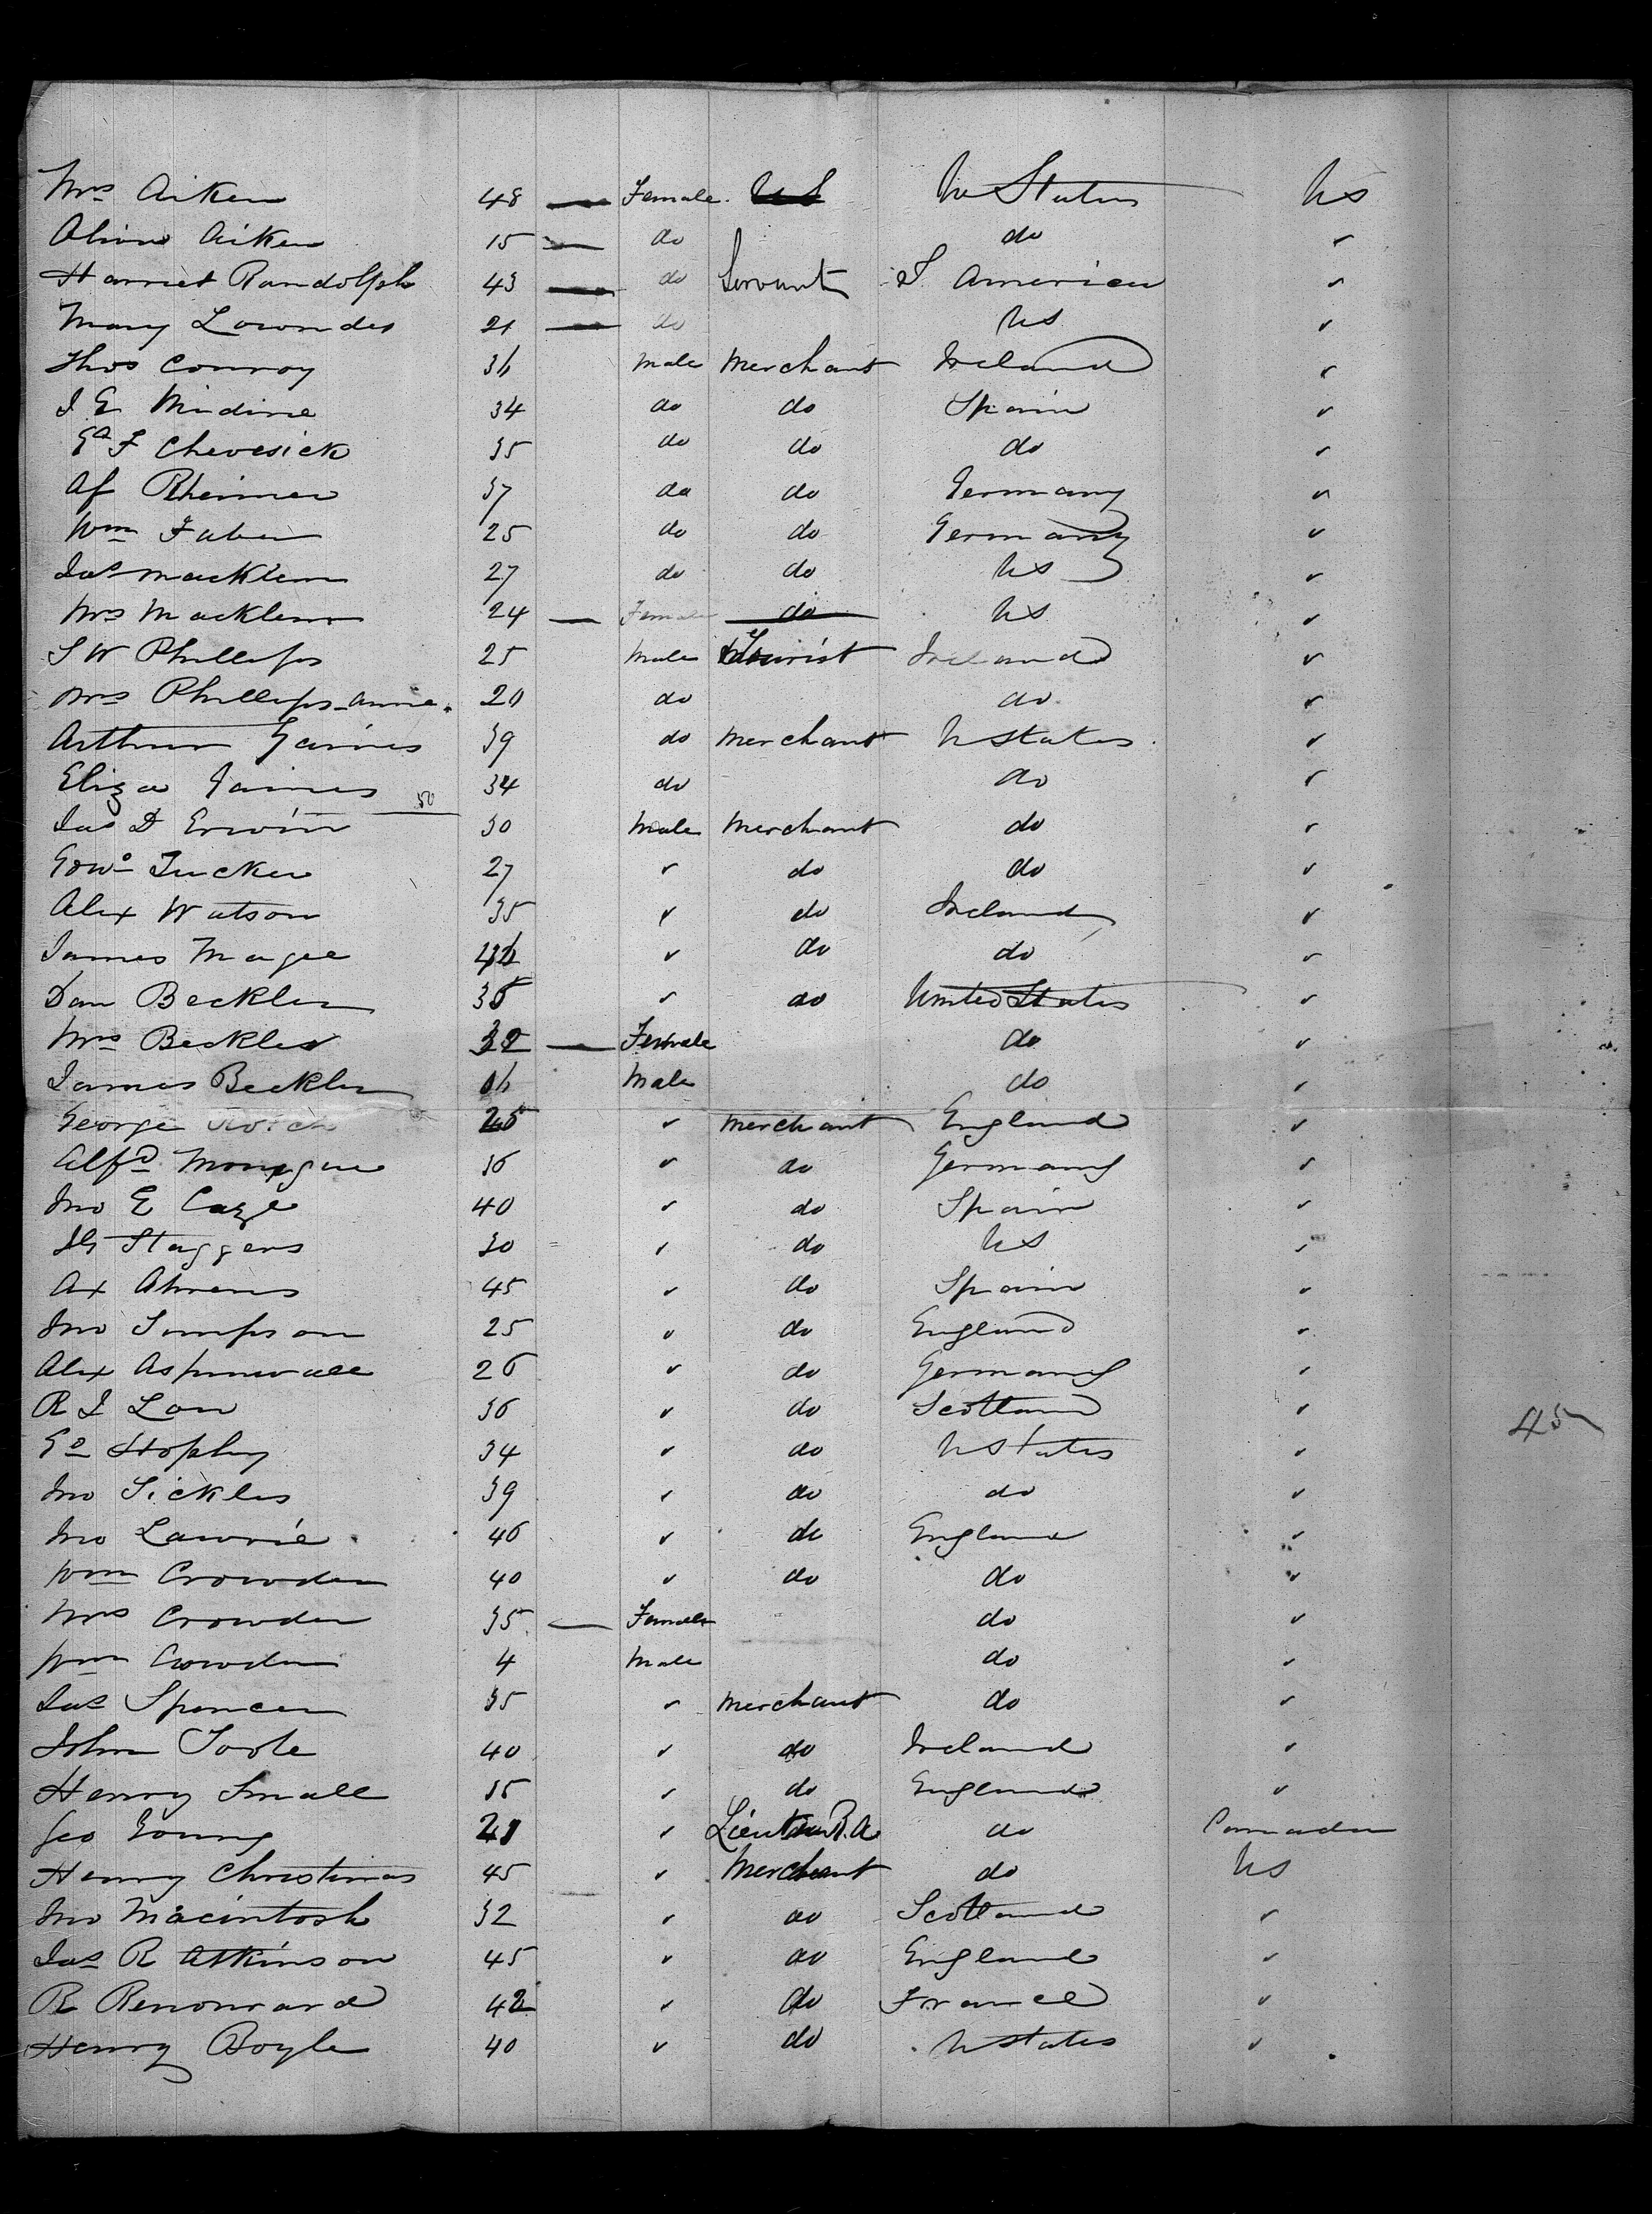 Mrs Aiken 48 — Female U S U States U S
Aiken 15 — do do "
Harriet Randolph 43 — do Servant S. America "
Mary Lowndes 21 — do U S "
Thos Conroy 36 male Merchant Ireland "
J E 34 do do Spain "
F 35 do do do "
37 do do Germany "
Wm Faber 25 do do Germany "
Jas Macklem 27 do do U S "
Mrs Macklem 24 — Female do U S "
S W Phillips 25 Male Tourist Ireland "
Mrs Phillips - Annie. 20 do do "
Arthur Gaines 39 do Merchant U States "
Eliza Gaines 50 34 do do "
Jas D Erwin 30 Male Merchant do "
Edwd Tucker 27 " do do "
Alex Watson 35 " do Ireland "
James Magee " do do "
Dan Beckler " do United States "
Mrs Beckler 32 — Female do "
James Beckler 06 Male do "
George " Merchant England "
Alfd 36 " do Germany "
Jno E 40 " do Spain "
Staggers 30 " do U S "
Ax Ahrens 45 " do Spain "
Jno Simpson 25 " do England "
Alex Aspinwall 26 " do Germany "
R J Low 36 " do Scotland " 45
34 " do U States "
Jno Sickles 39 " do do "
Jno Lawrie 46 " do England "
Wm Crowder 40 " do do "
Mrs Crowder 35 — Female do "
Wm Crowder 4 Male do "
Jas Spencer 35 " Merchant do "
John Toole 40 " do Ireland "
Henry Small 35 " do England "
Geo Young " Lieut R. A do Canada
Henry Christmas 45 " Merchant do U S
Jno Macintosh 32 " do Scotland "
Jas R Atkinson 45 " do England "
R Renouard 42 " do France "
Henry Boyle 40 " do U States "